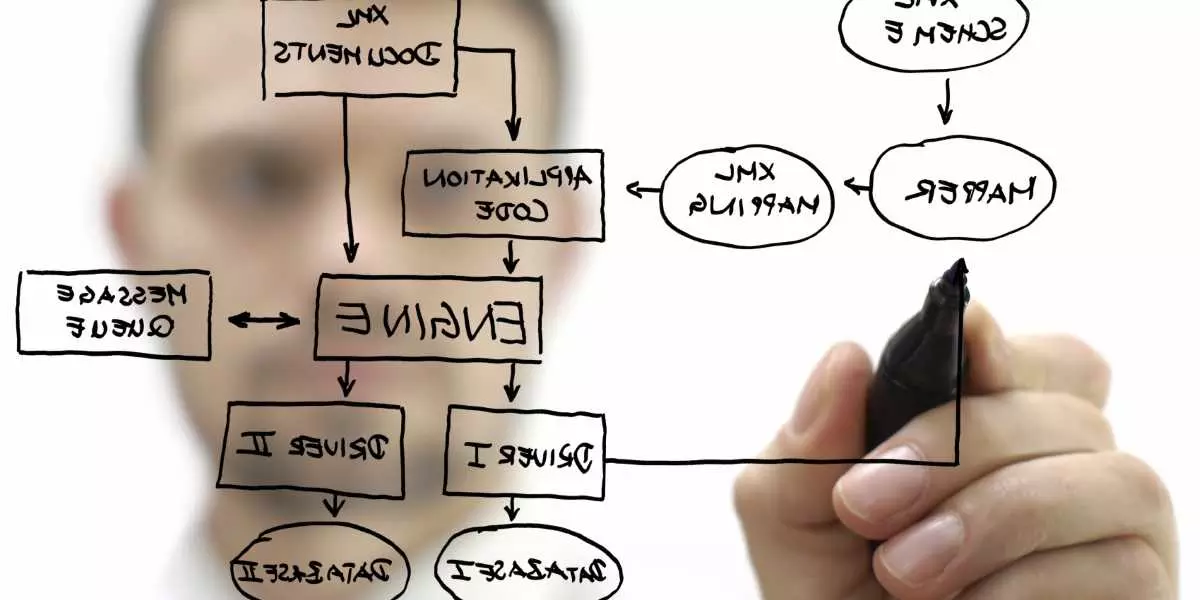 XML
DOCUMENTS
XML
SCHEME
APPLIKATION
CODE
XML
MAPPING
MAPPER
MESSAGE
QUEUE
ENGINE
DRIVER II
DRIVER I
DATABASE II
DATABASE I